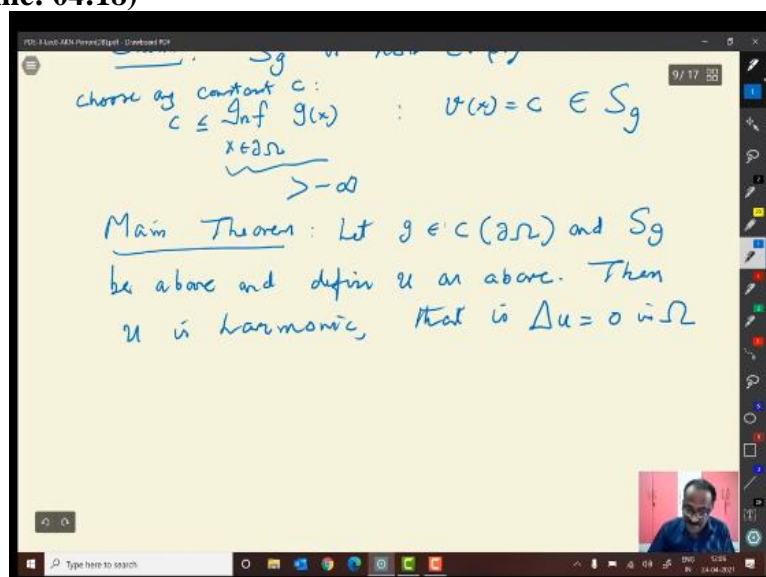 04:18)
Drawboard PDF
9/17
choose any constant c :
c ≤ Inf g(x) : v(x) = c ∈ S_g
x∈∂Ω
> -∞
Main Theorem : Let g ∈ C(∂Ω) and S_g
be above and define u as above. Then
u is harmonic, that is Δu = 0 in Ω
Type here to search
ENG
IN
12:06
24-04-2021